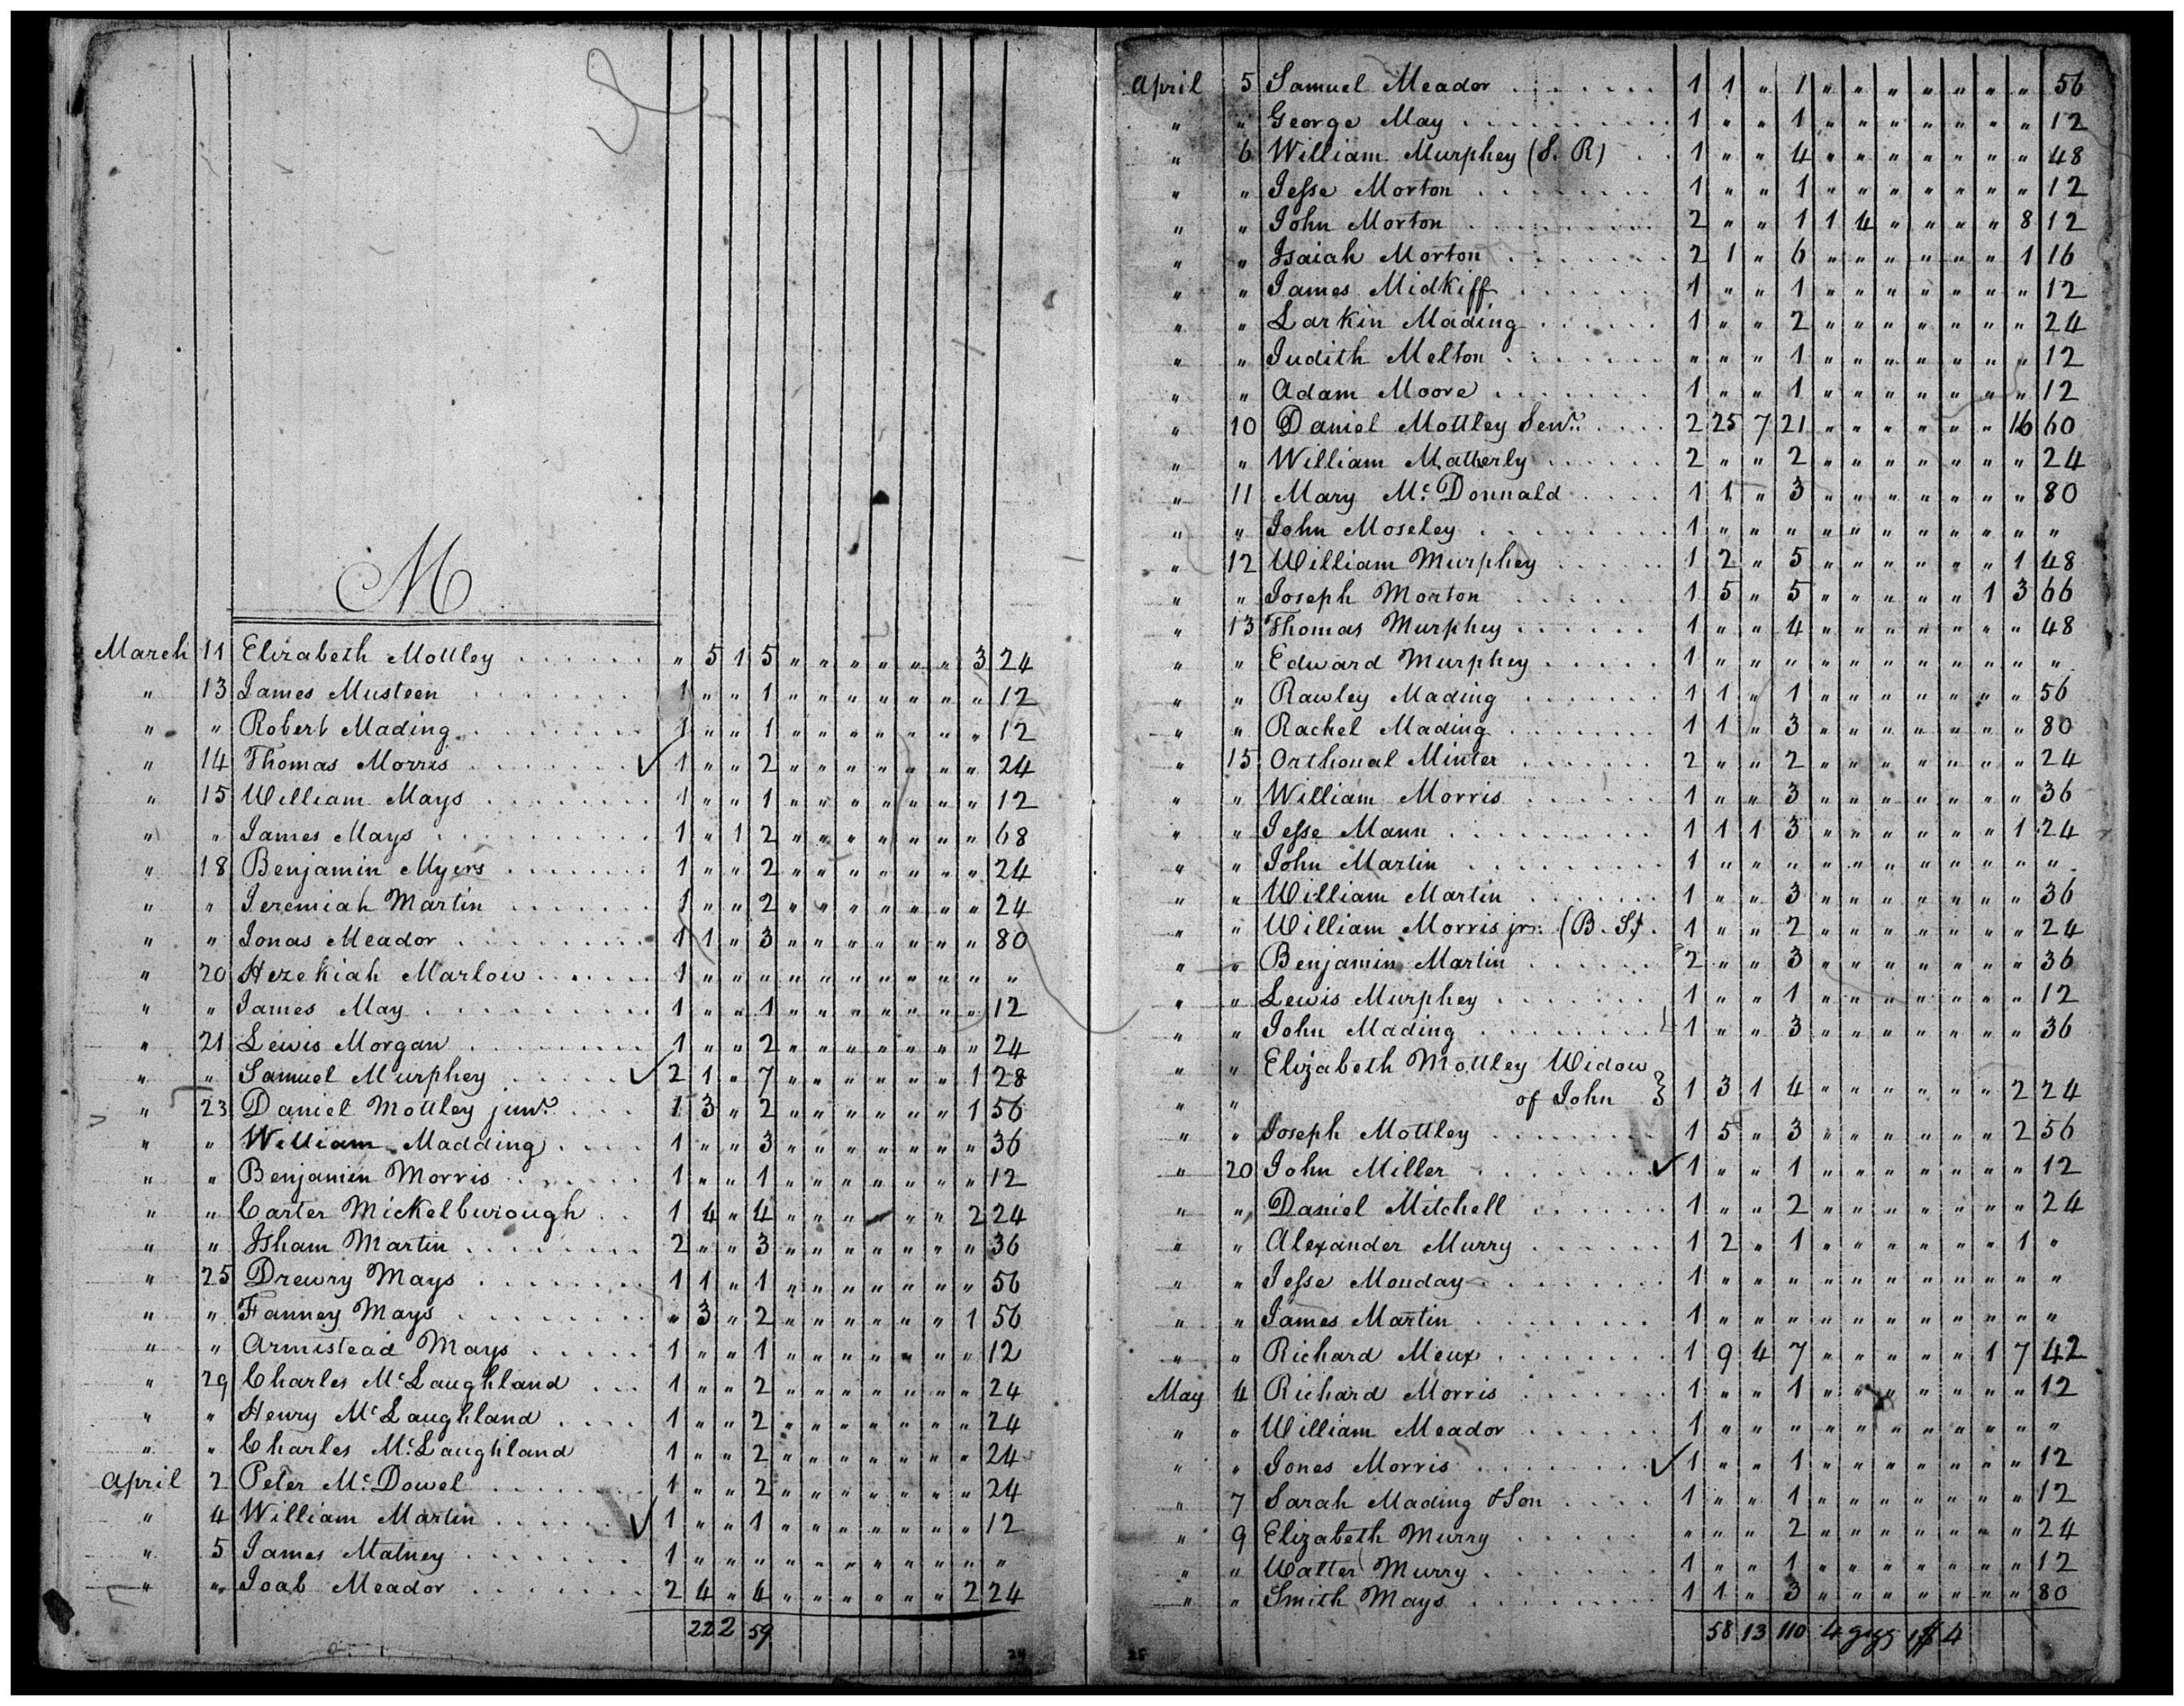 M
March 11 Elizabeth Mottley . . . . . . " 5 1 5 " " " " " " 3 24
" 13 James Musteen . . . . . . 1 " " 1 " " " " " " " 12
" " Robert Mading . . . . . . 1 " " 1 " " " " " " " 12
" 14 Thomas Morris . . . . . . ✓ 1 " " 2 " " " " " " " 24
" 15 William Mays . . . . . . 1 " " 1 " " " " " " " 12
" " James Mays . . . . . . 1 " 1 2 " " " " " " " 68
" 18 Benjamin Myers . . . . . . 1 " " 2 " " " " " " " 24
" " Jeremiah Martin . . . . . . 1 " " 2 " " " " " " " 24
" " Jonas Meador . . . . . . 1 1 " 3 " " " " " " " 80
" 20 Hezekiah Marlow . . . . . . 1 " " " " " " " " " " "
" " James May . . . . . . 1 " " 1 " " " " " " " 12
" 21 Lewis Morgan . . . . . . 1 " " 2 " " " " " " " 24
" " Samuel Murphey . . . . . ✓ 2 1 " 7 " " " " " " 1 28
" 23 Daniel Mottley junr. . . . 1 3 " 2 " " " " " " 1 56
" " William Madding . . . . 1 " " 3 " " " " " " " 36
" " Benjamin Morris . . . . . 1 " " 1 " " " " " " " 12
" " Carter Mickelburough . . 1 4 " 4 " " " " " " 2 24
" " Isham Martin . . . . . . 2 " " 3 " " " " " " " 36
" 25 Drewry Mays . . . . . . 1 1 " 1 " " " " " " " 56
" " Fanney Mays . . . . . . " 3 " 2 " " " " " " 1 56
" " Armistead Mays . . . . . 1 " " 1 " " " " " " " 12
" 29 Charles McLaughland . . . 1 " " 2 " " " " " " " 24
" " Henry McLaughland . . . . 1 " " 2 " " " " " " " 24
" " Charles McLaughland 1 " " 2 " " " " " " " 24
April 2 Peter McDowel . . . . . . 1 " " 2 " " " " " " " 24
" 4 William Martin . . . . . . ✓ 1 " " 1 " " " " " " " 12
" 5 James Matney . . . . . . 1 " " " " " " " " " " "
" " Joab Meador . . . . . . 2 4 " 4 " " " " " " 2 24
22 2 59
24
April 5 Samuel Meador . . . . . . 1 1 " 1 " " " " " " " 56
" " George May . . . . . . 1 " " 1 " " " " " " " 12
" 6 William Murphey (S. R) . . 1 " " 4 " " " " " " " 48
" " Jesse Morton . . . . . . 1 " " 1 " " " " " " " 12
" " John Morton . . . . . . 2 " " 1 1 4 " " " " 8 12
" " Isaiah Morton . . . . . . 2 1 " 6 " " " " " " 1 16
" " James Midkiff . . . . . . 1 " " 1 " " " " " " " 12
" " Larkin Mading . . . . . . 1 " " 2 " " " " " " " 24
" " Judith Melton . . . . . . " " " 1 " " " " " " " 12
" " Adam Moore . . . . . . 1 " " 1 " " " " " " " 12
" 10 Daniel Mottley Senr. . . . . 2 25 7 21 " " " " " " 16 60
" " William Matherly . . . . . . 2 " " 2 " " " " " " " 24
" 11 Mary McDonnald . . . . 1 1 " 3 " " " " " " " 80
" " John Moseley . . . . . . 1 " " " " " " " " " " "
" 12 William Murphey . . . . . . 1 2 " 5 " " " " " " 1 48
" " Joseph Morton . . . . . . 1 5 " 5 " " " " " 1 3 66
" 13 Thomas Murphey . . . . . . 1 " " 4 " " " " " " " 48
" " Edward Murphey . . . . . 1 " " " " " " " " " " "
" " Rawley Mading . . . . . . 1 1 " 1 " " " " " " " 56
" " Rachel Mading . . . . . . 1 1 " 3 " " " " " " " 80
" 15 Orthonal Minter . . . . . . 2 " " 2 " " " " " " " 24
" " William Morris . . . . . . 1 " " 3 " " " " " " " 36
" " Jesse Mann . . . . . . 1 1 1 3 " " " " " " 1 24
" " John Martin . . . . . . 1 " " " " " " " " " " "
" " William Martin . . . . . . 1 " " 3 " " " " " " " 36
" " William Morris jr. (B. S) . 1 " " 2 " " " " " " " 24
" " Benjamin Martin . . . . . . 2 " " 3 " " " " " " " 36
" " Lewis Murphey . . . . . . 1 " " 1 " " " " " " " 12
" " John Mading . . . . . . 1 " " 3 " " " " " " " 36
" " Elizabeth Mottley Widow
" " of John } 1 3 1 4 " " " " " " 2 24
" " Joseph Mottley . . . . . . 1 5 " 3 " " " " " " 2 56
" 20 John Miller . . . . . . ✓ 1 " " 1 " " " " " " " 12
" " Daniel Mitchell . . . . . . 1 " " 2 " " " " " " " 24
" " Alexander Murry . . . . . . 1 2 " 1 " " " " " " 1 "
" " Jesse Monday . . . . . . 1 " " " " " " " " " " "
" " James Martin . . . . . . 1 " " " " " " " " " " "
" " Richard Meux . . . . . . 1 9 4 7 " " " " " 1 7 42
May 4 Richard Morris . . . . . . 1 " " 1 " " " " " " " 12
" " William Meador . . . . . . 1 " " " " " " " " " " "
" " Jones Morris . . . . . . ✓ 1 " " 1 " " " " " " " 12
" 7 Sarah Mading & Son . . . . 1 " " 1 " " " " " " " 12
" 9 Elizabeth Murry . . . . . " " " 2 " " " " " " " 24
" " Watter Murry . . . . . . 1 " " 1 " " " " " " " 12
" " Smith Mays . . . . . . 1 1 " 3 " " " " " " " 80
58 13 110 4 gigs
25